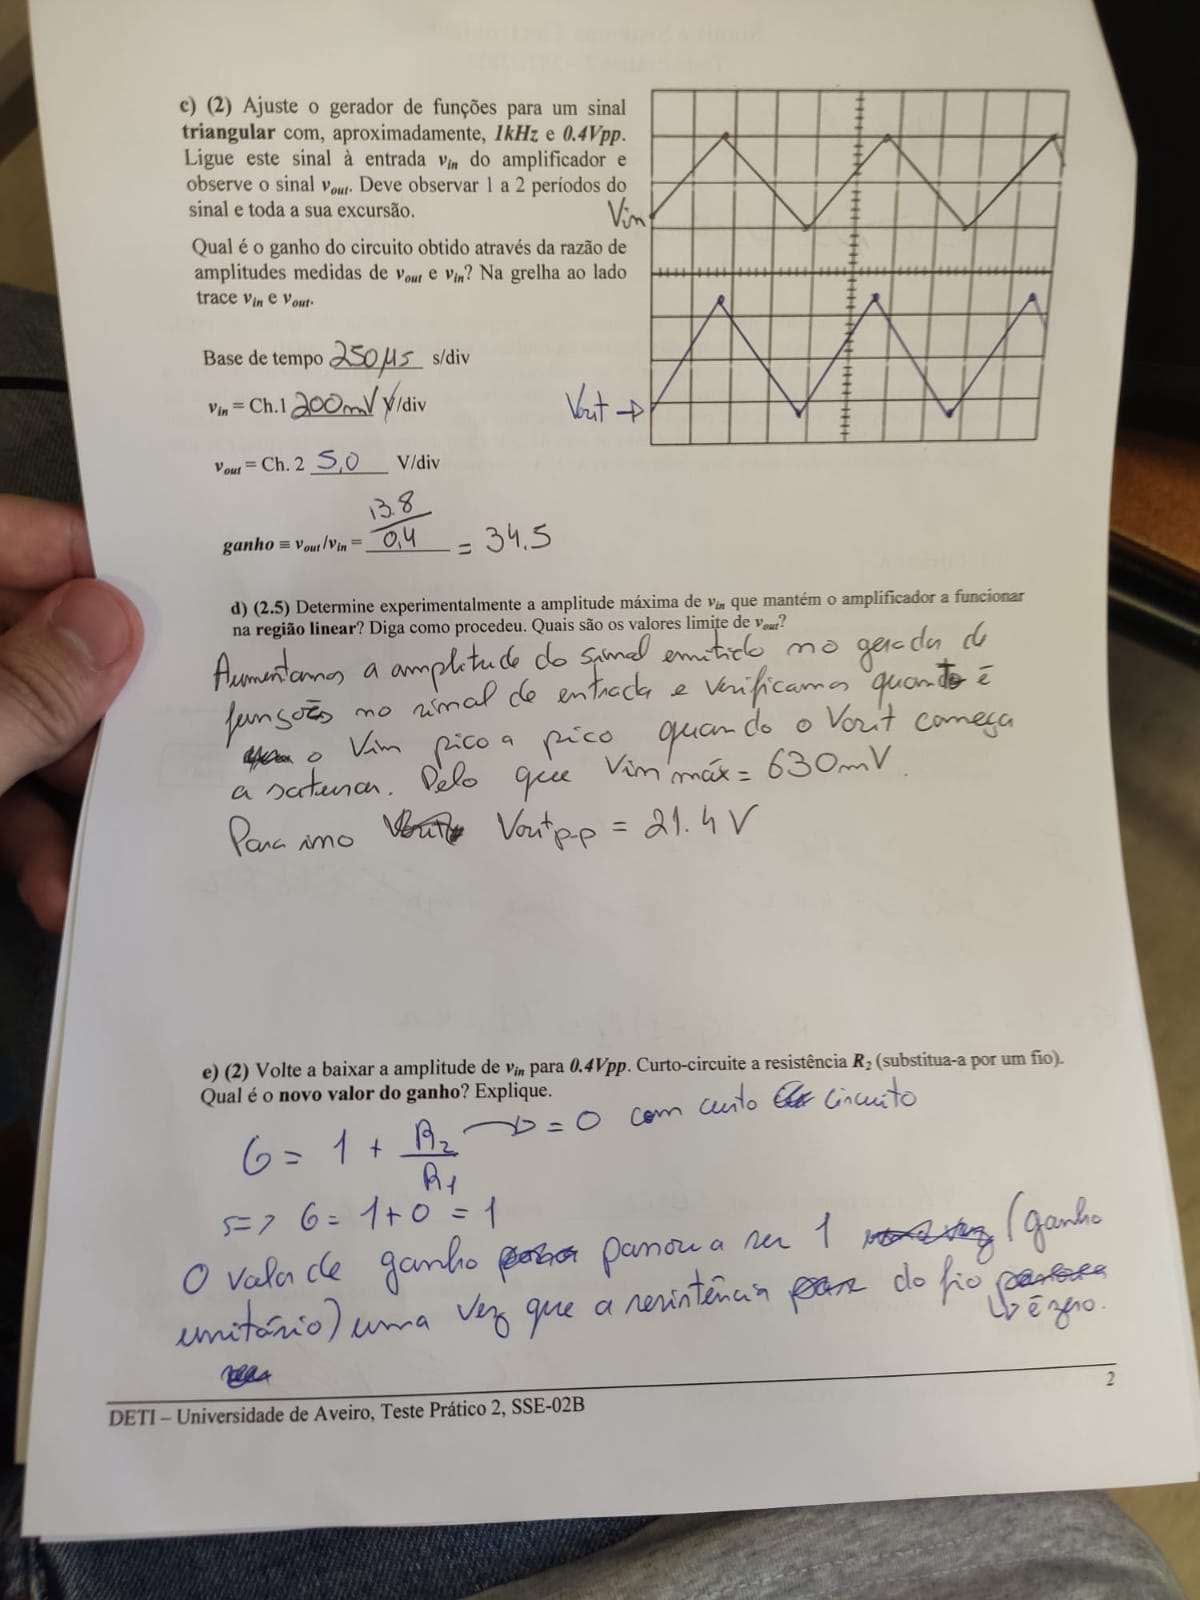 c) (2) Ajuste o gerador de funções para um sinal
triangular com, aproximadamente, 1kHz e 0.4Vpp.
Ligue este sinal à entrada vin do amplificador e
observe o sinal vout. Deve observar 1 a 2 períodos do
sinal e toda a sua excursão.
Vin
Qual é o ganho do circuito obtido através da razão de
amplitudes medidas de vout e vin? Na grelha ao lado
trace vin e vout.
Base de tempo 250µs s/div
vin = Ch.1 200mV V/div
Vout →
vout = Ch. 2 5,0 V/div
ganho ≡ vout/vin = 13.8/0,4 = 34.5
d) (2.5) Determine experimentalmente a amplitude máxima de vin que mantém o amplificador a funcionar
na região linear? Diga como procedeu. Quais são os valores limite de vout?
Aumentamos a amplitude do sinal emitido no gerador de
funções no sinal de entrada e verificamos quanto é
o Vin pico a pico quando o Vout começa
a saturar. Pelo que Vin máx = 630mV.
Para isso Voutp-p = 21.4 V
e) (2) Volte a baixar a amplitude de vin para 0.4Vpp. Curto-circuite a resistência R2 (substitua-a por um fio).
Qual é o novo valor do ganho? Explique.
G = 1 + R2/R1 → = 0 com curto circuito
s=> G = 1+0 = 1
O valor de ganho passou a ser 1 (ganho
unitário) uma vez que a resistência do fio
↳ é zero.
2
DETI – Universidade de Aveiro, Teste Prático 2, SSE-02B